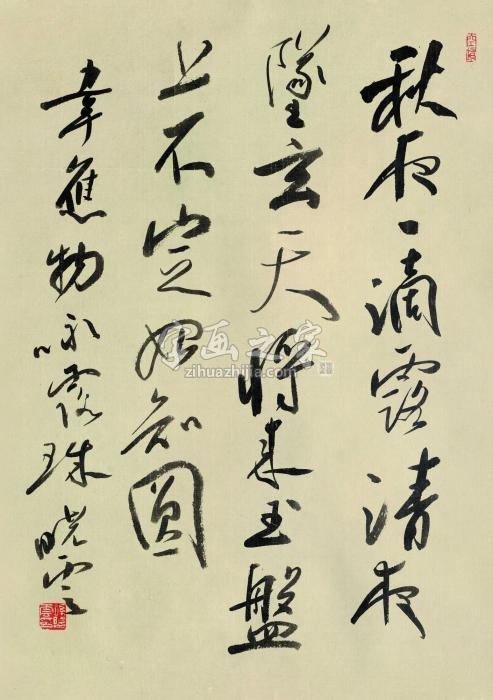 秋夜一滴露清夜
墜玄天將来玉盤
上不定始知圓
韋應物咏露珠 晓雲
字画之家
zihuazhijia.com